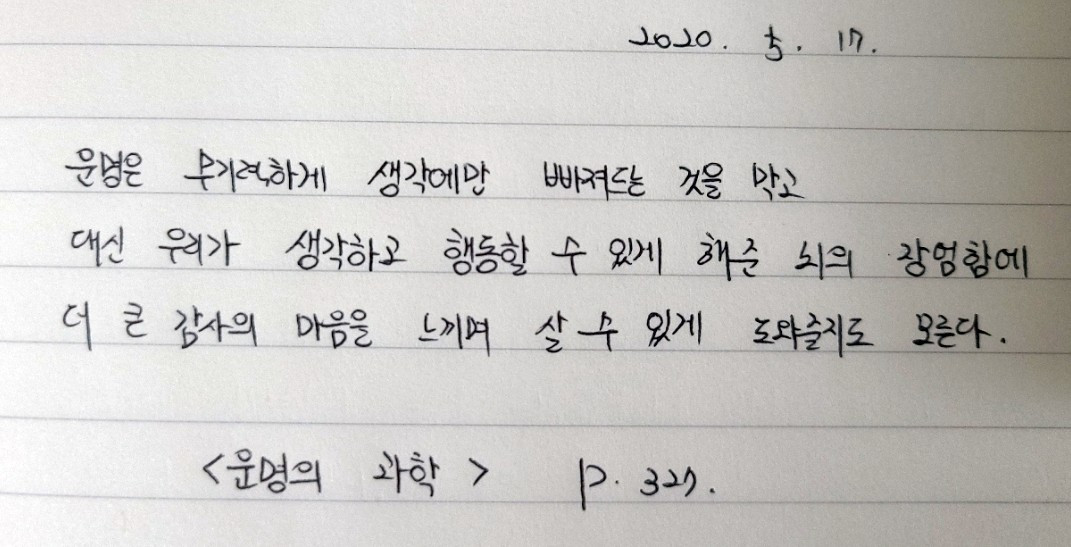 2020. 5. 17.
운명은 무기력하게 생각에만 빠져드는 것을 막고
대신 우리가 생각하고 행동할 수 있게 해준 뇌의 장엄함에
더 큰 감사의 마음을 느끼며 살 수 있게 도와줄지도 모른다.
<운명의 과학> p. 327.